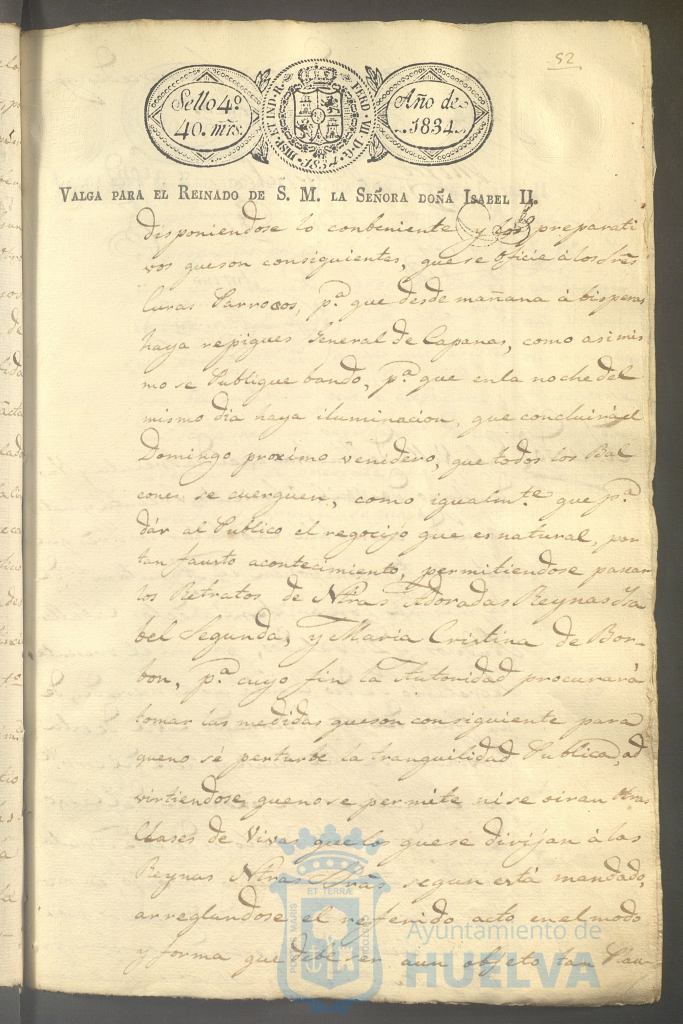 52
Sello 4º
40. mrs.
HISP. ET IND. R. FERD. VII. D. G. 1834
Año de
1834.
VALGA PARA EL REINADO DE S. M. LA SEÑORA DOÑA ISABEL II.
disponiendose lo conbeniente y los preparati
vos queson consiguientes, quese oficie á los Sres
Curas Parrocos, pª que desde mañana á bisperas
haya repiques General de Capanas, como asi mis
mo se Publique bando, pª que enla noche del
mismo dia haya iluminacion, que concluirá el
Domingo proximo venidero, que todos los Bal
cones se cuerguen, como igualmte que pª
dár al Publico el regocijo que es natural, por
tan fausto acontecimiento, permitiendose pasear
los Retratos de Ntras Adoradas Reynas Ysa
bel Segunda, y Maria Cristina de Bor-
bon, pª cuyo fin la Autoridad procurará
tomar las medidas queson consiguiente para
queno se perturbe la tranquilidad Publica, ad
virtiendose, queno se permite ni se oiran otras
Clases de Vivas que los quese dirijan á las
Reynas Ntras Sras segun está mandado,
arreglandose el referido acto enel modo
y forma que debe ser aun objeto tan Plau-
PORTUS MARIS ET TERRÆ CUSTODIA
Ayuntamiento de
HUELVA